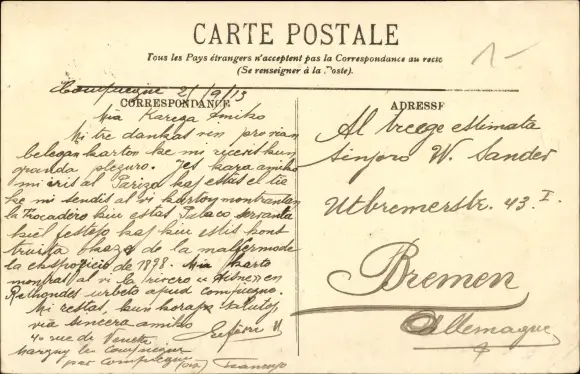 CARTE POSTALE
Tous les Pays étrangers n'acceptent pas la Correspondance au recto
(Se renseigner à la Poste).
1-
Compiegne 2/9/13
CORRESPONDANCE
Mia Karega Amiko
Mi tre dankas vin pro vian
belegan karton ke mi ricevis kun
granda plezuro. Jes kara amiko
mi iris al Parizo kaj estas el tie
ke mi sendis al vi karton montrantan
la Trocadero kiu estas Palaco servanta
kiel festejo kaj kiu estis kons
truita okaze de la malfermo de
la ekspozicio de 1878. Mia karto
montras al vi la rivero "Aisne" en
Rethondes urbeto apud Compiegno.
Mi restas, kun koraj salutoj
via sincera amiko
4 rue de
Margny les Compiegne
par Compiegne (Oise) Francujo
ADRESSE
Al tre ege estimata
Sinjoro W. Sander
Utbremerstr. 43 I.
Bremen
Allemagne